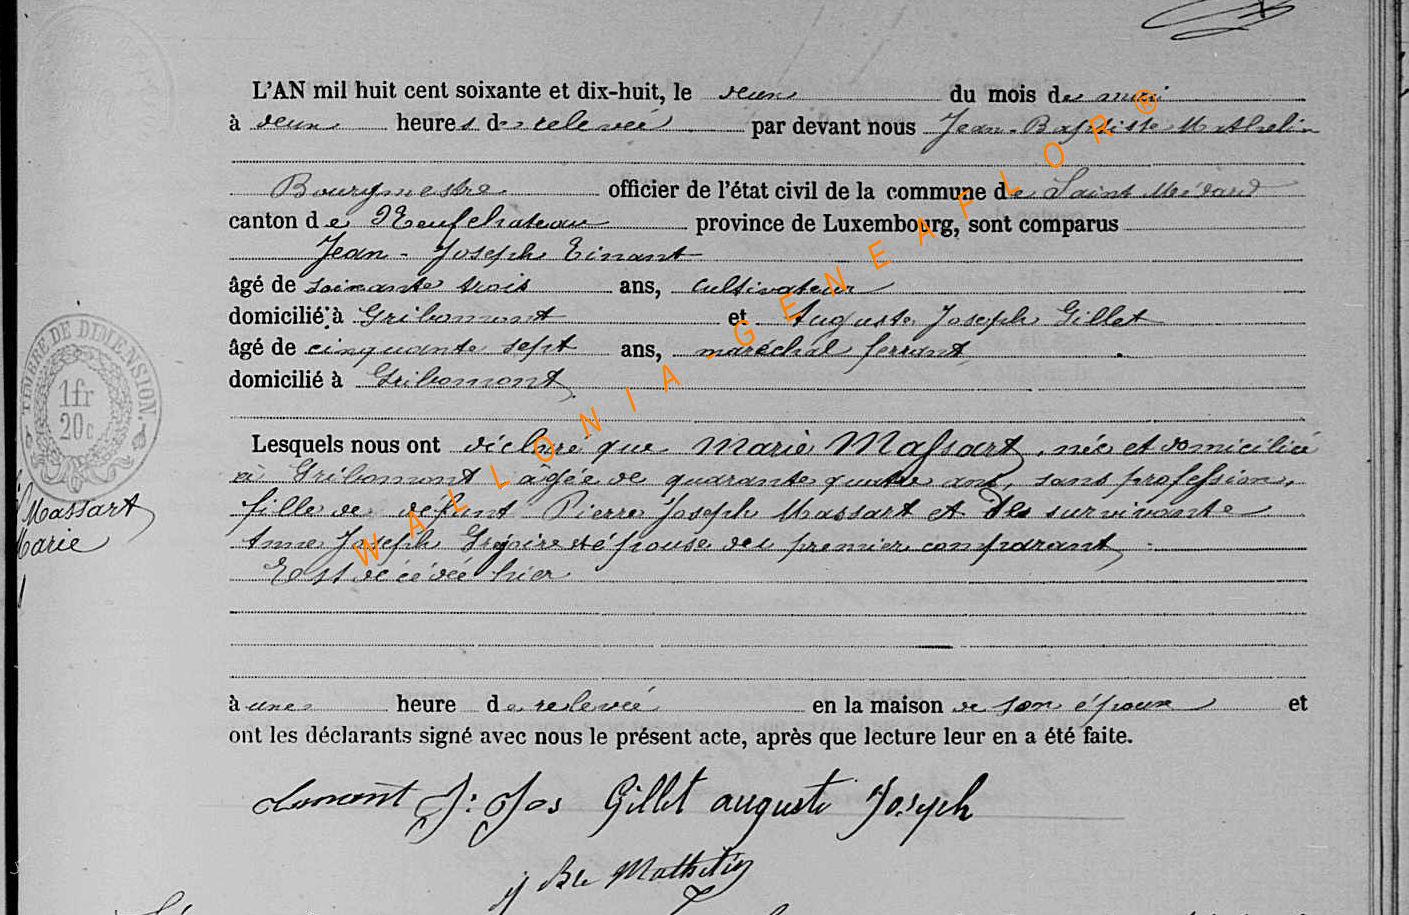 L'AN mil huit cent soixante et dix-huit, le deux du mois de mai
à deux heures de relevée par devant nous Jean-Baptiste Mathelin
Bourgmestre officier de l'état civil de la commune de Saint Médard
canton de Neufchateau province de Luxembourg, sont comparus
Jean-Joseph Tinant
âgé de soixante trois ans, cultivateur
domicilié à Gribomont et Auguste Joseph Gillet
âgé de cinquante sept ans, maréchal ferrant
domicilié à Gribomont
Lesquels nous ont déclaré que Marie Massart, née et domiciliée
à Gribomont âgée de quarante quatre ans, sans profession,
fille de défunt Pierre Joseph Massart et de survivante
Anne Joseph Grégoire et épouse du premier comparant,
Est décédée hier
à une heure de relevée en la maison de son époux et
ont les déclarants signé avec nous le présent acte, après que lecture leur en a été faite.
J: Jos Gillet auguste Joseph
j Bte Mathelin
TIMBRE DE DIMENSION
1fr
20c
Massart
Marie
WALLONIA-GENEAFLOR®